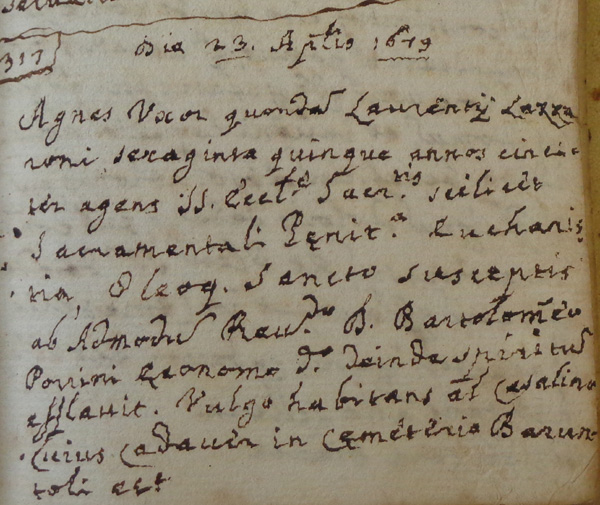 317
Die 23. Aprilis 1679
Agnes Uxor quondã Laurentij Lazza
roni sexaginta quinque annos circi-
ter agens SS. Eccl.ᵉ Sacr.ᵗⁱˢ scilicet
Sacramentali Penit.ᵃ Eucharis
tia, Oleoq. Sancto susceptis
ab Admodũ Reu.ᵈᵒ D. Bartolomeo
Porrini Economo d.ᵒ deinde spiritũ
efflauit. Vulgo habitans al Casalino
Cuius cadauer in Cemeterio Barun-
toli est